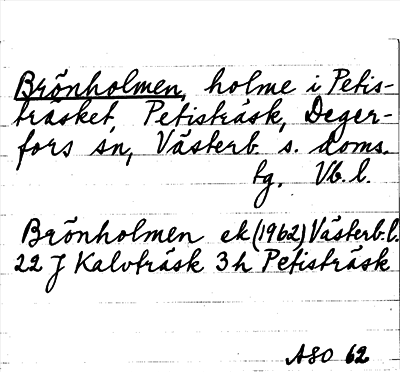 Brönholmen, holme i Petis-
träsket, Petisträsk, Deger-
fors sn, Västerb. s. doms.
tg, Vb. l.
Brönholmen ek (1962) Västerb. l.
22 J Kalvträsk 3 h Petisträsk
ASO 62